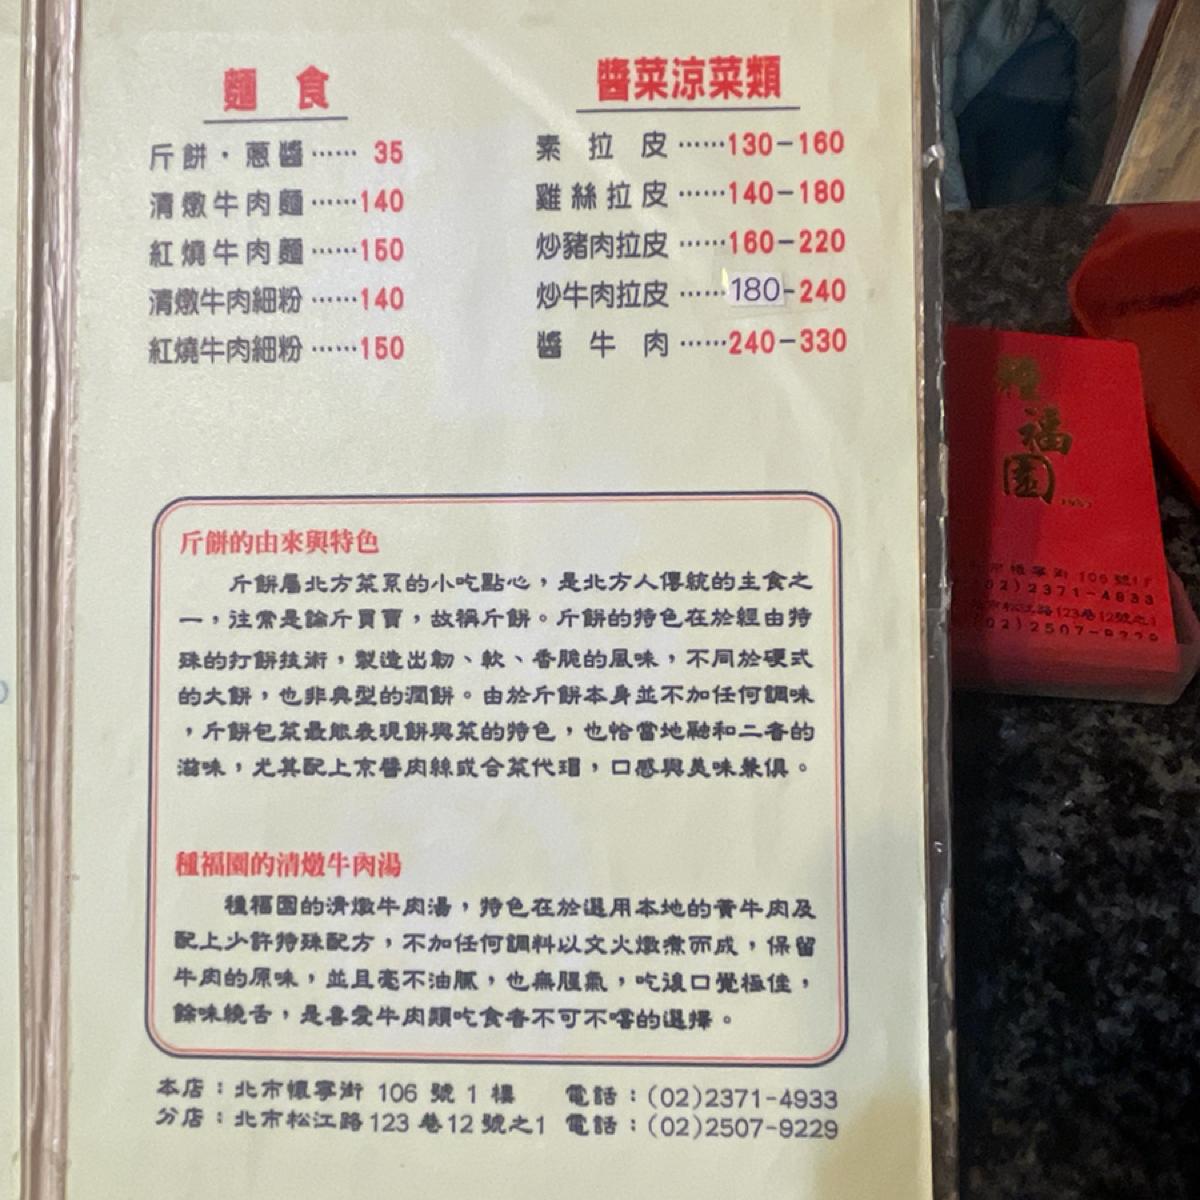 麵 食
斤餅・蔥醬……35
清燉牛肉麵……140
紅燒牛肉麵……150
清燉牛肉細粉……140
紅燒牛肉細粉……150
醬菜涼菜類
素拉皮……130-160
雞絲拉皮……140-180
炒豬肉拉皮……160-220
炒牛肉拉皮……180-240
醬牛肉……240-330
斤餅的由來與特色
斤餅屬北方菜系的小吃點心，是北方人傳統的主食之
一，往常是論斤買賣，故稱斤餅。斤餅的特色在於經由特
殊的打餅技術，製造出韌、軟、香脆的風味，不同於硬式
的大餅，也非典型的潤餅。由於斤餅本身並不加任何調味
，斤餅包菜最能表現餅與菜的特色，也恰當地融和二者的
滋味，尤其配上京醬肉絲或合菜代帽，口感與美味兼俱。
種福園的清燉牛肉湯
種福園的清燉牛肉湯，特色在於選用本地的黃牛肉及
配上少許特殊配方，不加任何調料以文火燉煮而成，保留
牛肉的原味，並且毫不油膩，也無腥氣，吃後口覺極佳，
餘味繞舌，是喜愛牛肉類吃食者不可不嚐的選擇。
本店：北市懷寧街 106 號 1 樓 電話：(02)2371-4933
分店：北市松江路 123 巷 12 號之1 電話：(02)2507-9229
種
福
園
市懷寧街 106 號1F
(02)2371-4933
市松江路123巷12號之1
(02)2507-9229